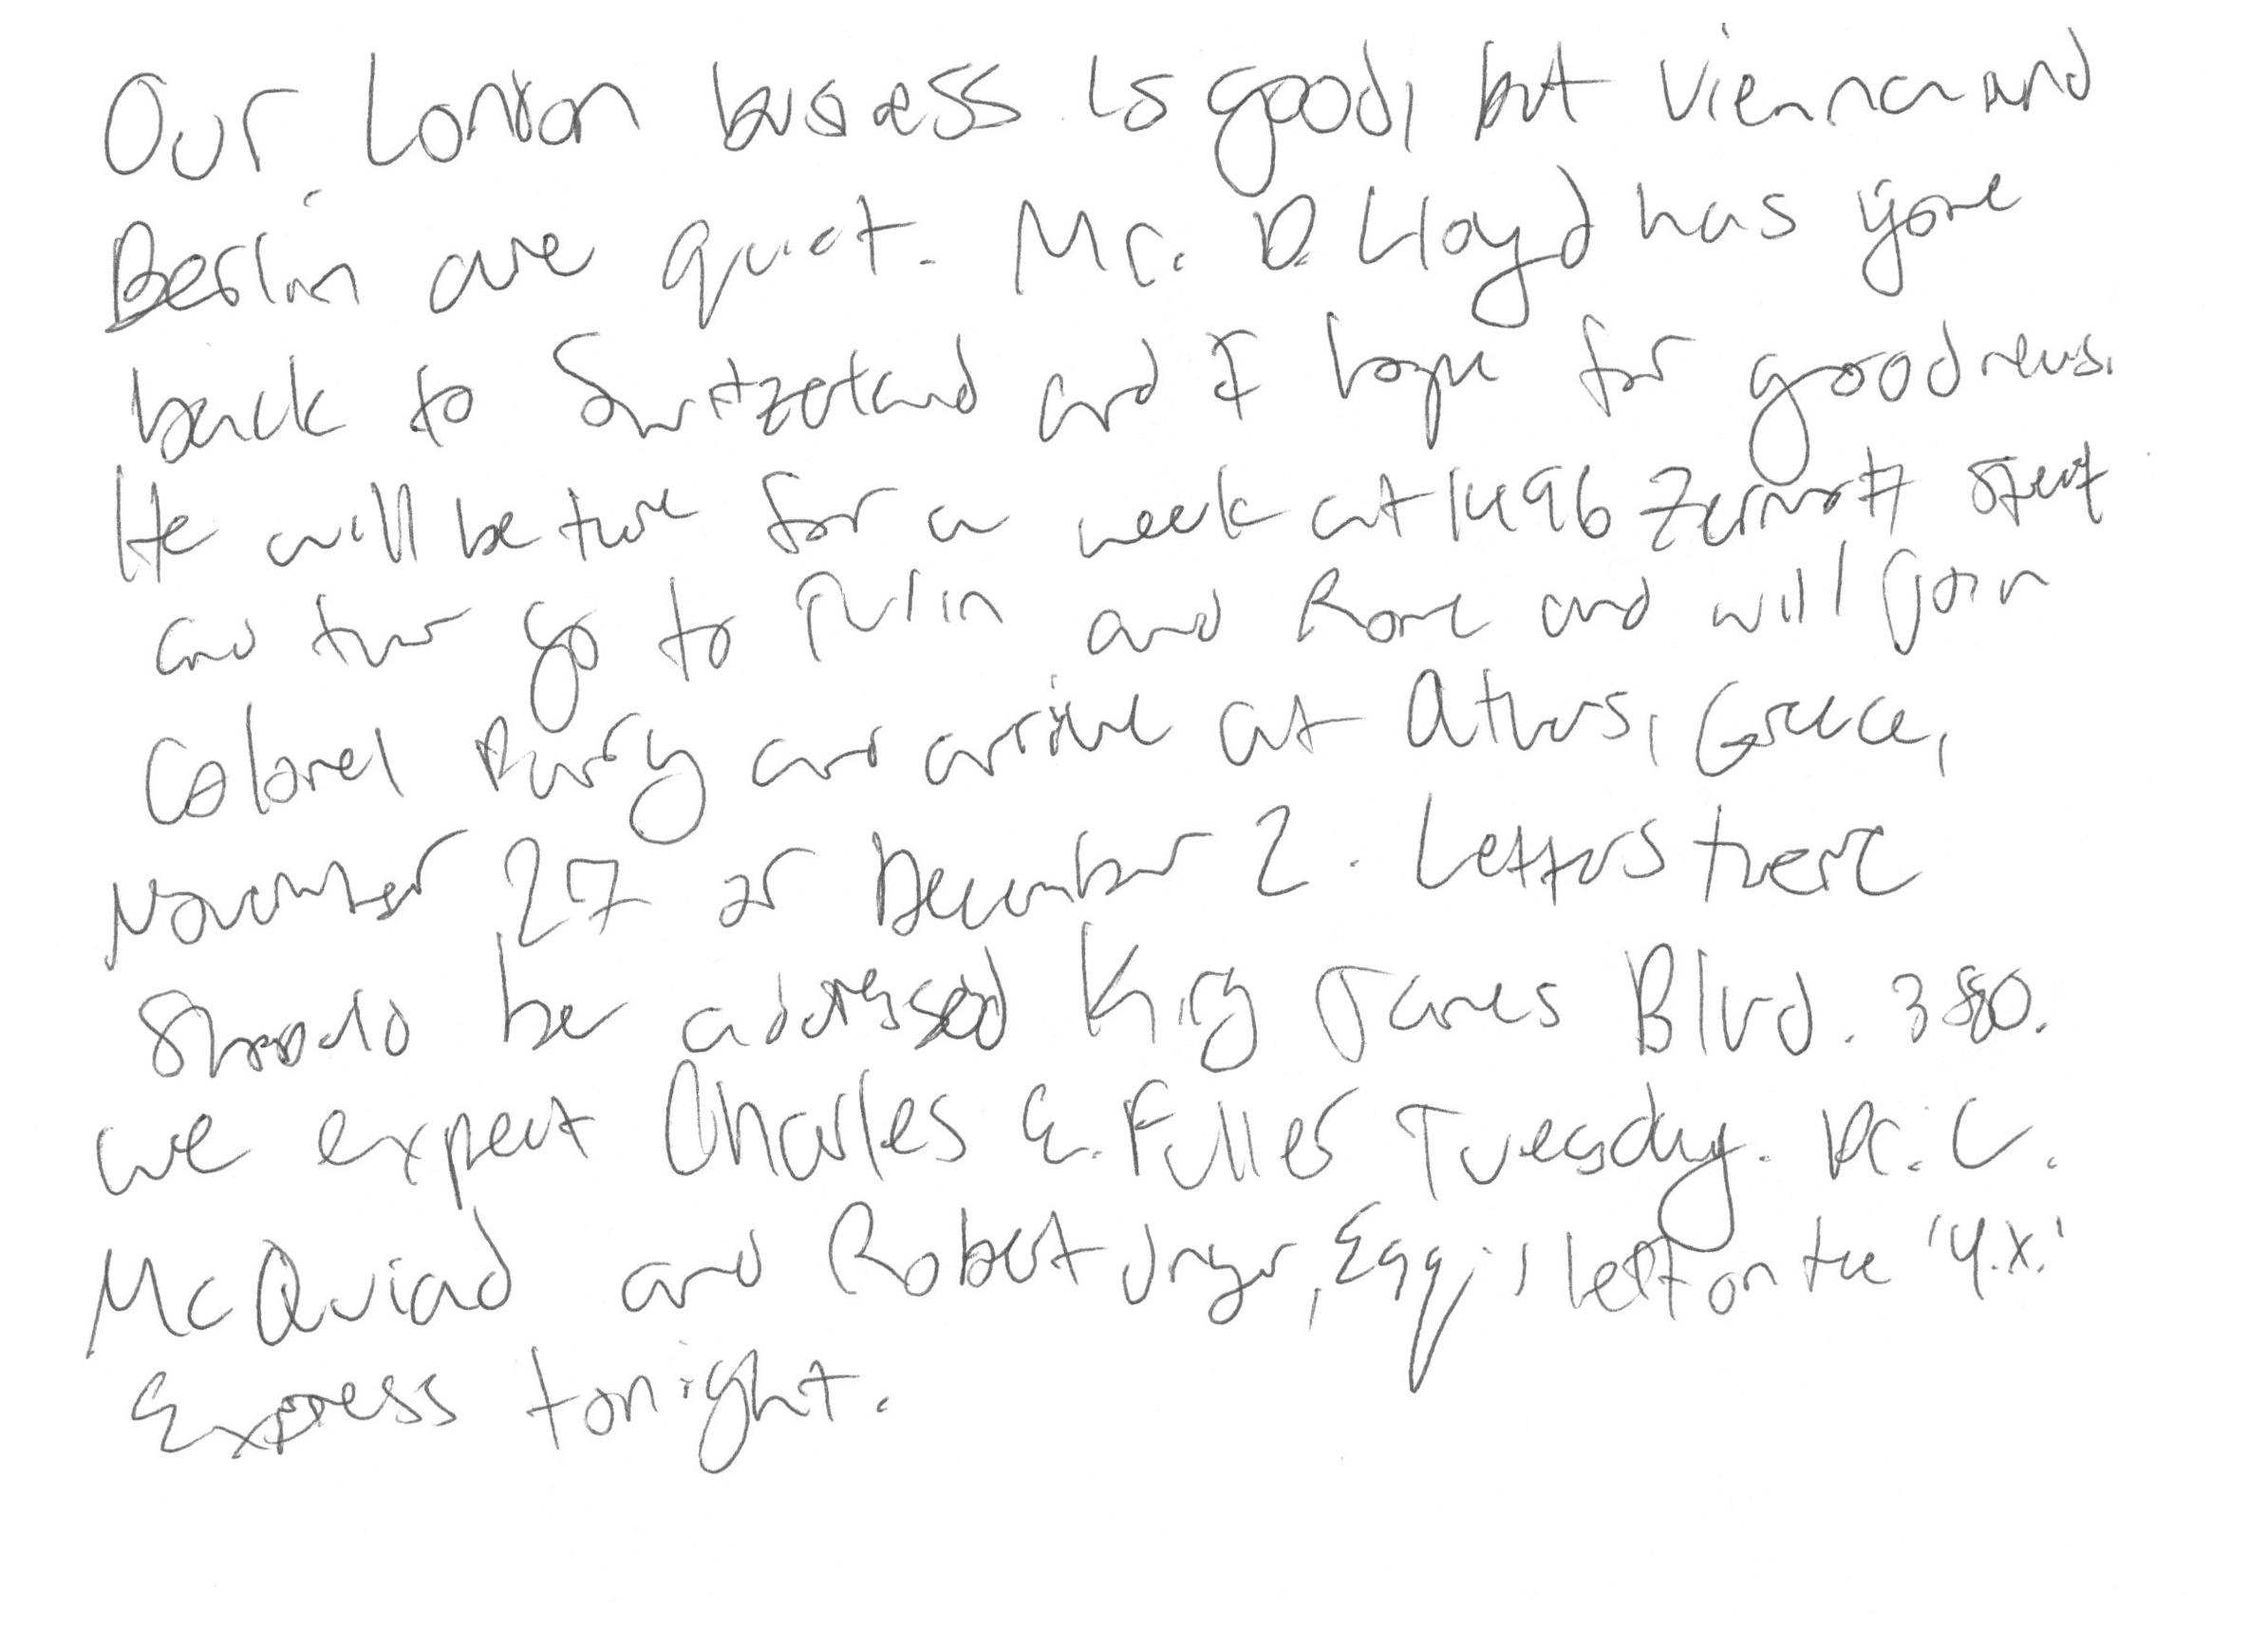 Our London business is good, but Vienna and
Berlin are quiet. Mr. D. Lloyd has gone
back to Switzerland and I hope for good news.
He will be there for a week at 1496 Zermott street
and then go to Turin and Rome and will join
Colonel Parry and arrive at Athens, Greece,
November 27 or December 2. Letters there
should be addressed King James Blvd. 380.
We expect Charles E. Fuller Tuesday. Dr. L.
McQuiad and Robert Unger, Esq., left on the 'Y.X.'
Express tonight.